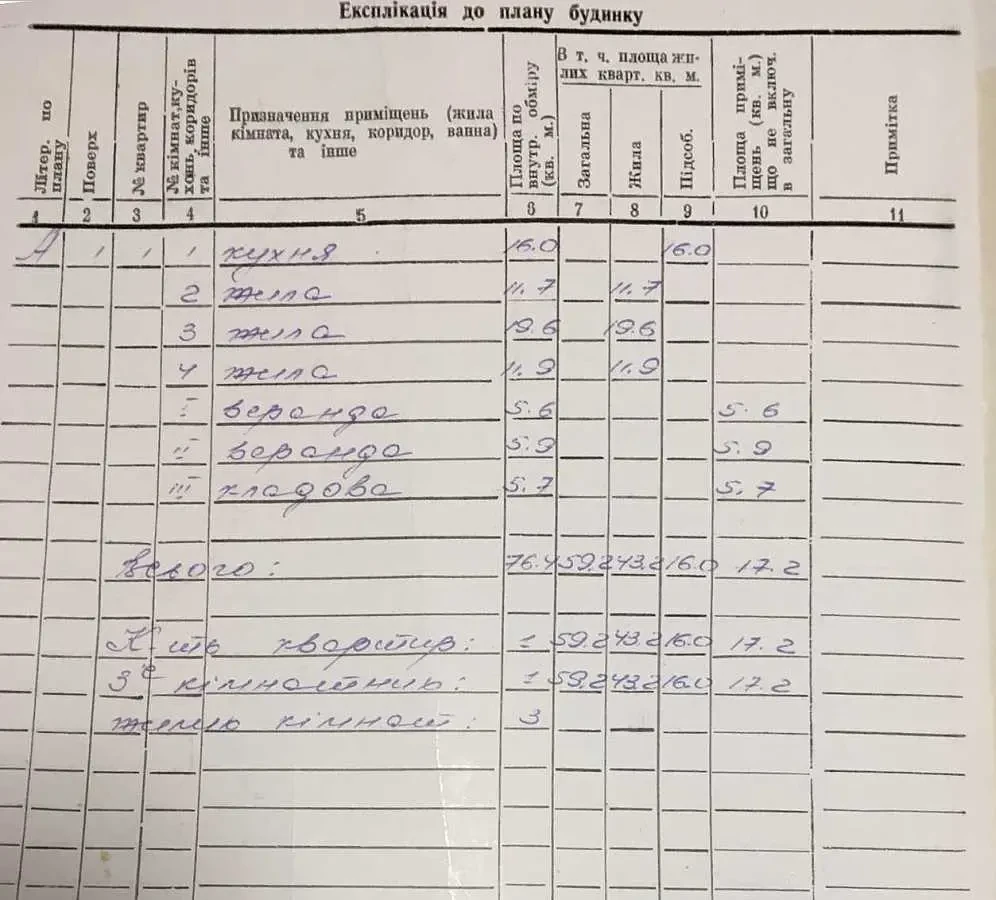 Експлікація до плану будинку
Літер. по плану
Поверх
№ квартир
№ кімнат, ку-
хонь, коридорів
та інше
Призначення приміщень (жила
кімната, кухня, коридор, ванна)
та інше
Площа по
внутр. обміру
(кв. м.)
В т. ч. площа жи-
лих кварт. кв. м.
Загальна
Жила
Підсоб.
Площа примі-
щень (кв. м.)
що не включ.
в загальну
Примітка
1 2 3 4 5 6 7 8 9 10 11
А 1 1 1 кухня 16.0 16.0
2 жила 11.7 11.7
3 жила 19.6 19.6
4 жила 11.9 11.9
I веранда 5.6 5.6
II веранда 5.9 5.9
III кладова 5.7 5.7
Всього: 76.4 59.2 43.2 16.0 17.2
К-ть квартир: 1 59.2 43.2 16.0 17.2
3х кімнатних: 1 59.2 43.2 16.0 17.2
жилих кімнат: 3